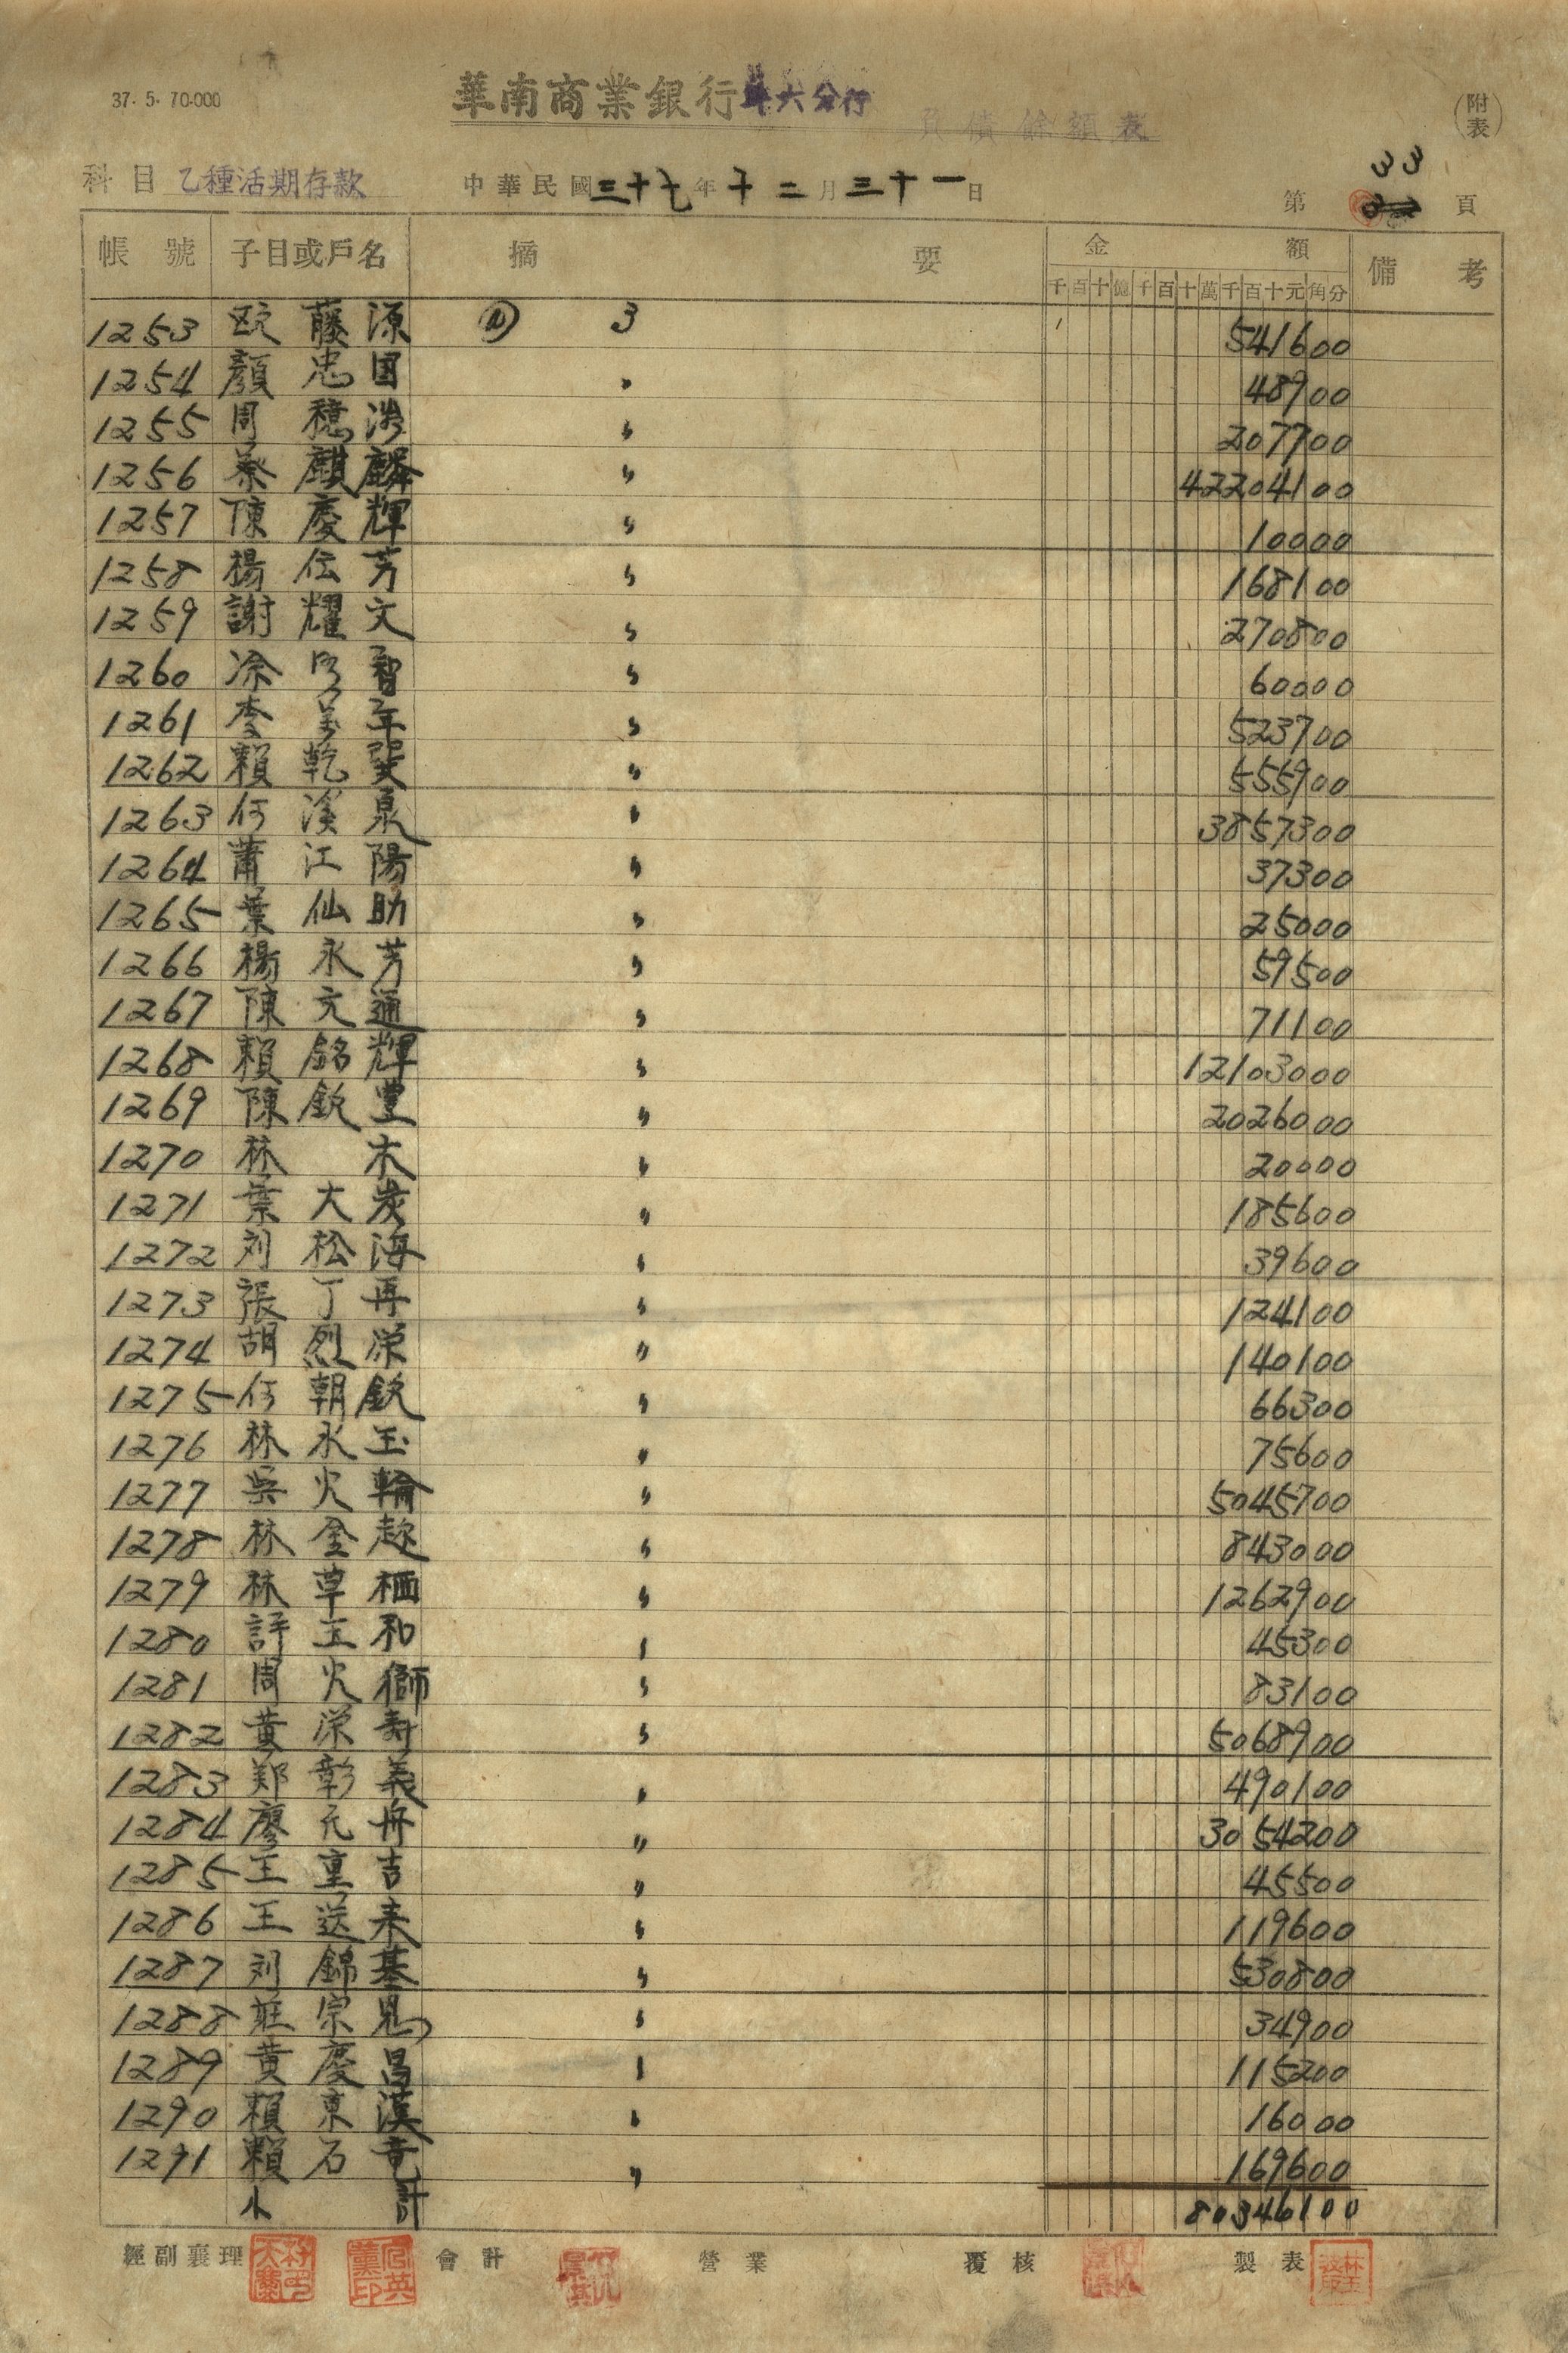 37. 5. 70.000
華南商業銀行斗六分行
負債餘額表
(附表)
科目 乙種活期存款 中華民國三十七年十二月三十一日 第 33 頁
帳號 子目或戶名 摘要 金額 備考
千百十億千百十萬千百十元角分
1253 欧藤源 3 541600
1254 顏忠国 48900
1255 周 207700
1256 蔡麒麟 〃 42204100
1257 陳慶輝 〃 10000
1258 楊伝芳 〃 168100
1259 謝耀文 〃 270800
1260 涂 智 〃 60000
1261 李萬年 〃 523700
1262 賴乾 〃 555900
1263 何溪泉 〃 3857300
1264 蕭江陽 〃 37300
1265 葉仙助 〃 25000
1266 楊永芳 〃 59500
1267 陳文通 〃 71100
1268 賴銘輝 〃 12103000
1269 陳欽豊 〃 2026000
1270 林木 〃 20000
1271 葉大炭 〃 185600
1272 刘松海 〃 39600
1273 張丁再 〃 124100
1274 胡烈栄 〃 140100
1275 何朝欽 〃 66300
1276 林永玉 〃 75600
1277 吳火輪 〃 5045700
1278 林金 〃 843000
1279 林草栖 〃 1262900
1280 許玉和 〃 45300
1281 周火獅 〃 83100
1282 黃栄寿 〃 5068900
1283 鄭彰義 〃 490100
1284 廖元舟 〃 3054200
1285 王重吉 〃 45500
1286 王送来 〃 119600
1287 刘錦基 〃 530800
1288 莊宗 〃 34900
1289 黃慶昌 〃 115200
1290 賴東漢 〃 16000
1291 賴石竜 〃 169600
小計 80346100
經副襄理 會計 營業 覆核 製表